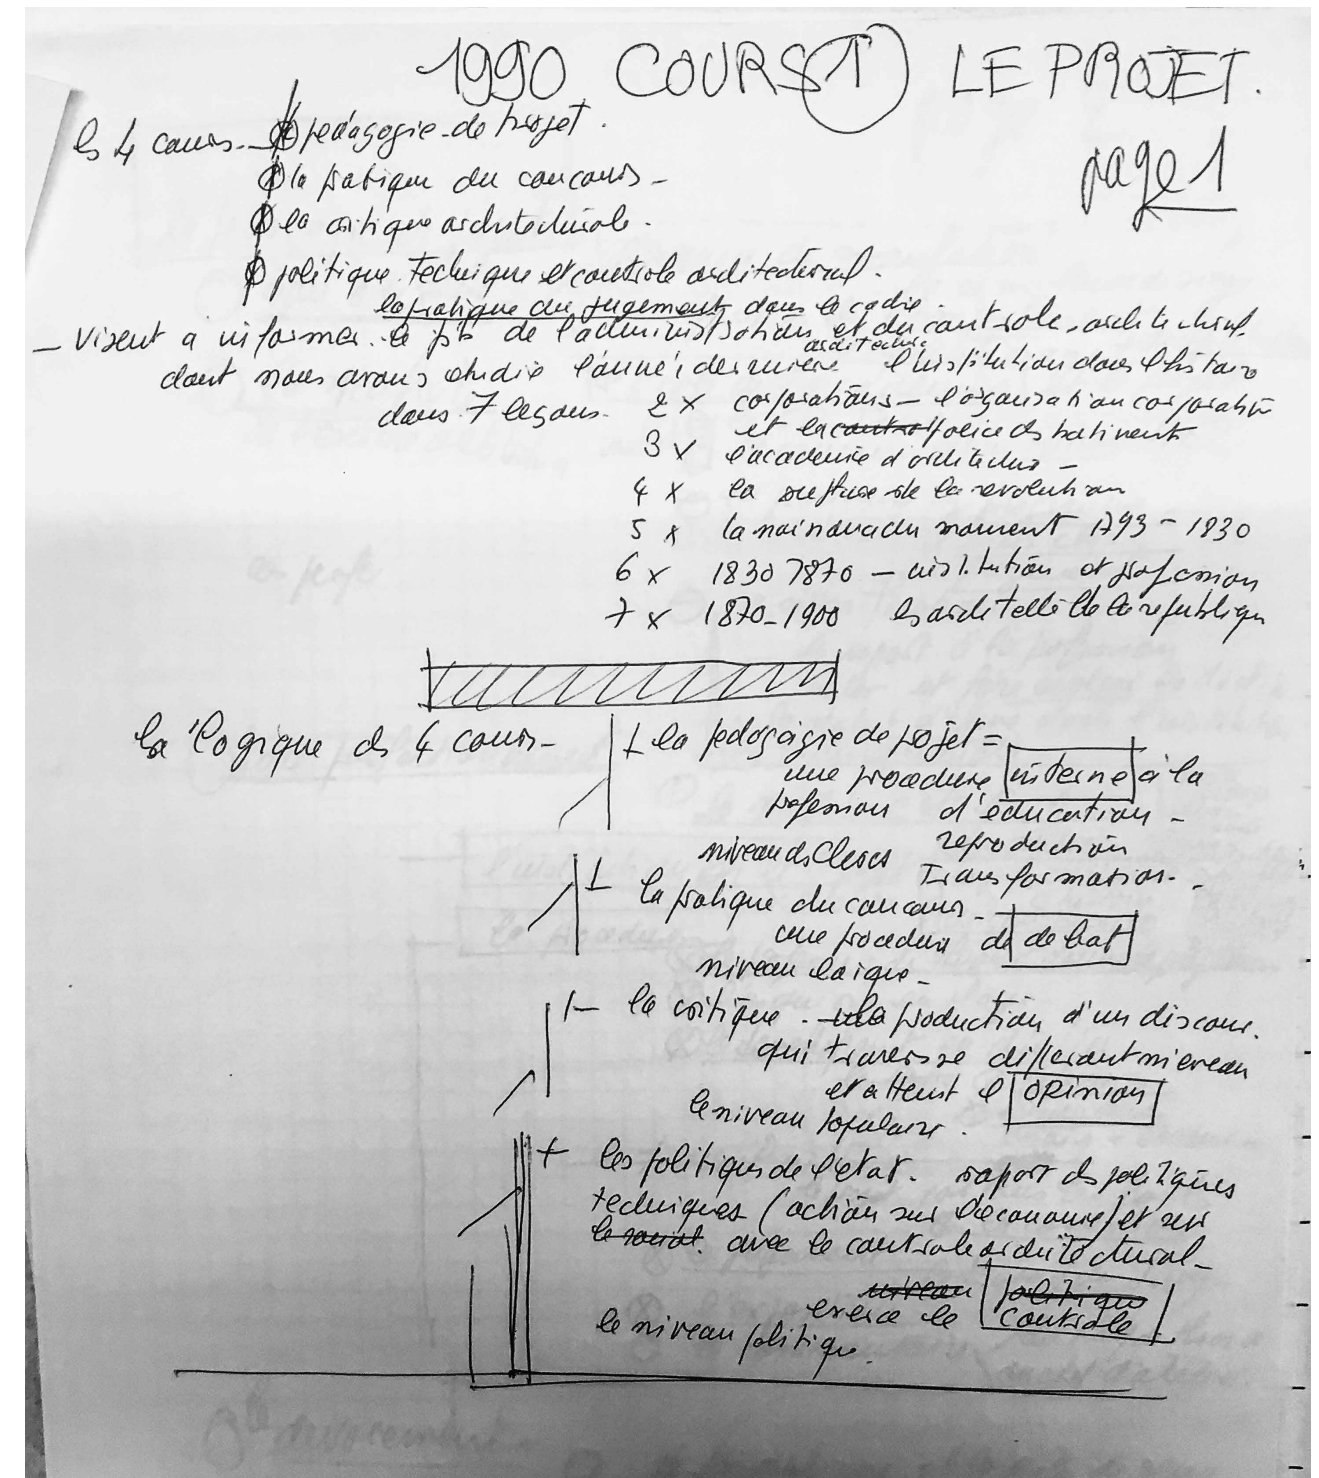 1990 COURS 1 LE PROJET.
page 1
les 4 cours - pedagogie de projet.
la pratique du concours -
la critique architecturale.
politique technique et controle architectural.
la pratique du jugement dans le cadre.
- visent a informer de l'administration et du controle architectural.
architecture
dont nous avons etudié l'année dernière l'institution dans l'histoire
dans 7 leçons. 2 x corporations - l'organisation corporative
et la police des batiments
3 x l'academie d'architecture -
4 x la rupture de la revolution
5 x la moment 1793 - 1830
6 x 1830 1870 - institution et profession
7 x 1870 - 1900 les architectes de la republique
la logique des 4 cours -
la pedagogie de projet =
une procedure interne à la
profession d'éducation -
reproduction
niveau des
transformation -
la pratique du concours -
une procedure de debat
niveau laique -
la critique. la production d'un discours.
qui traverse different niveau
et atteint l'opinion
le niveau populaire.
+ les politiques de l'etat. raport des politiques
techniques (action sur l'economie) et sur
le social. avec le controle architectural -
niveau politique
exerce le controle
le niveau politique.